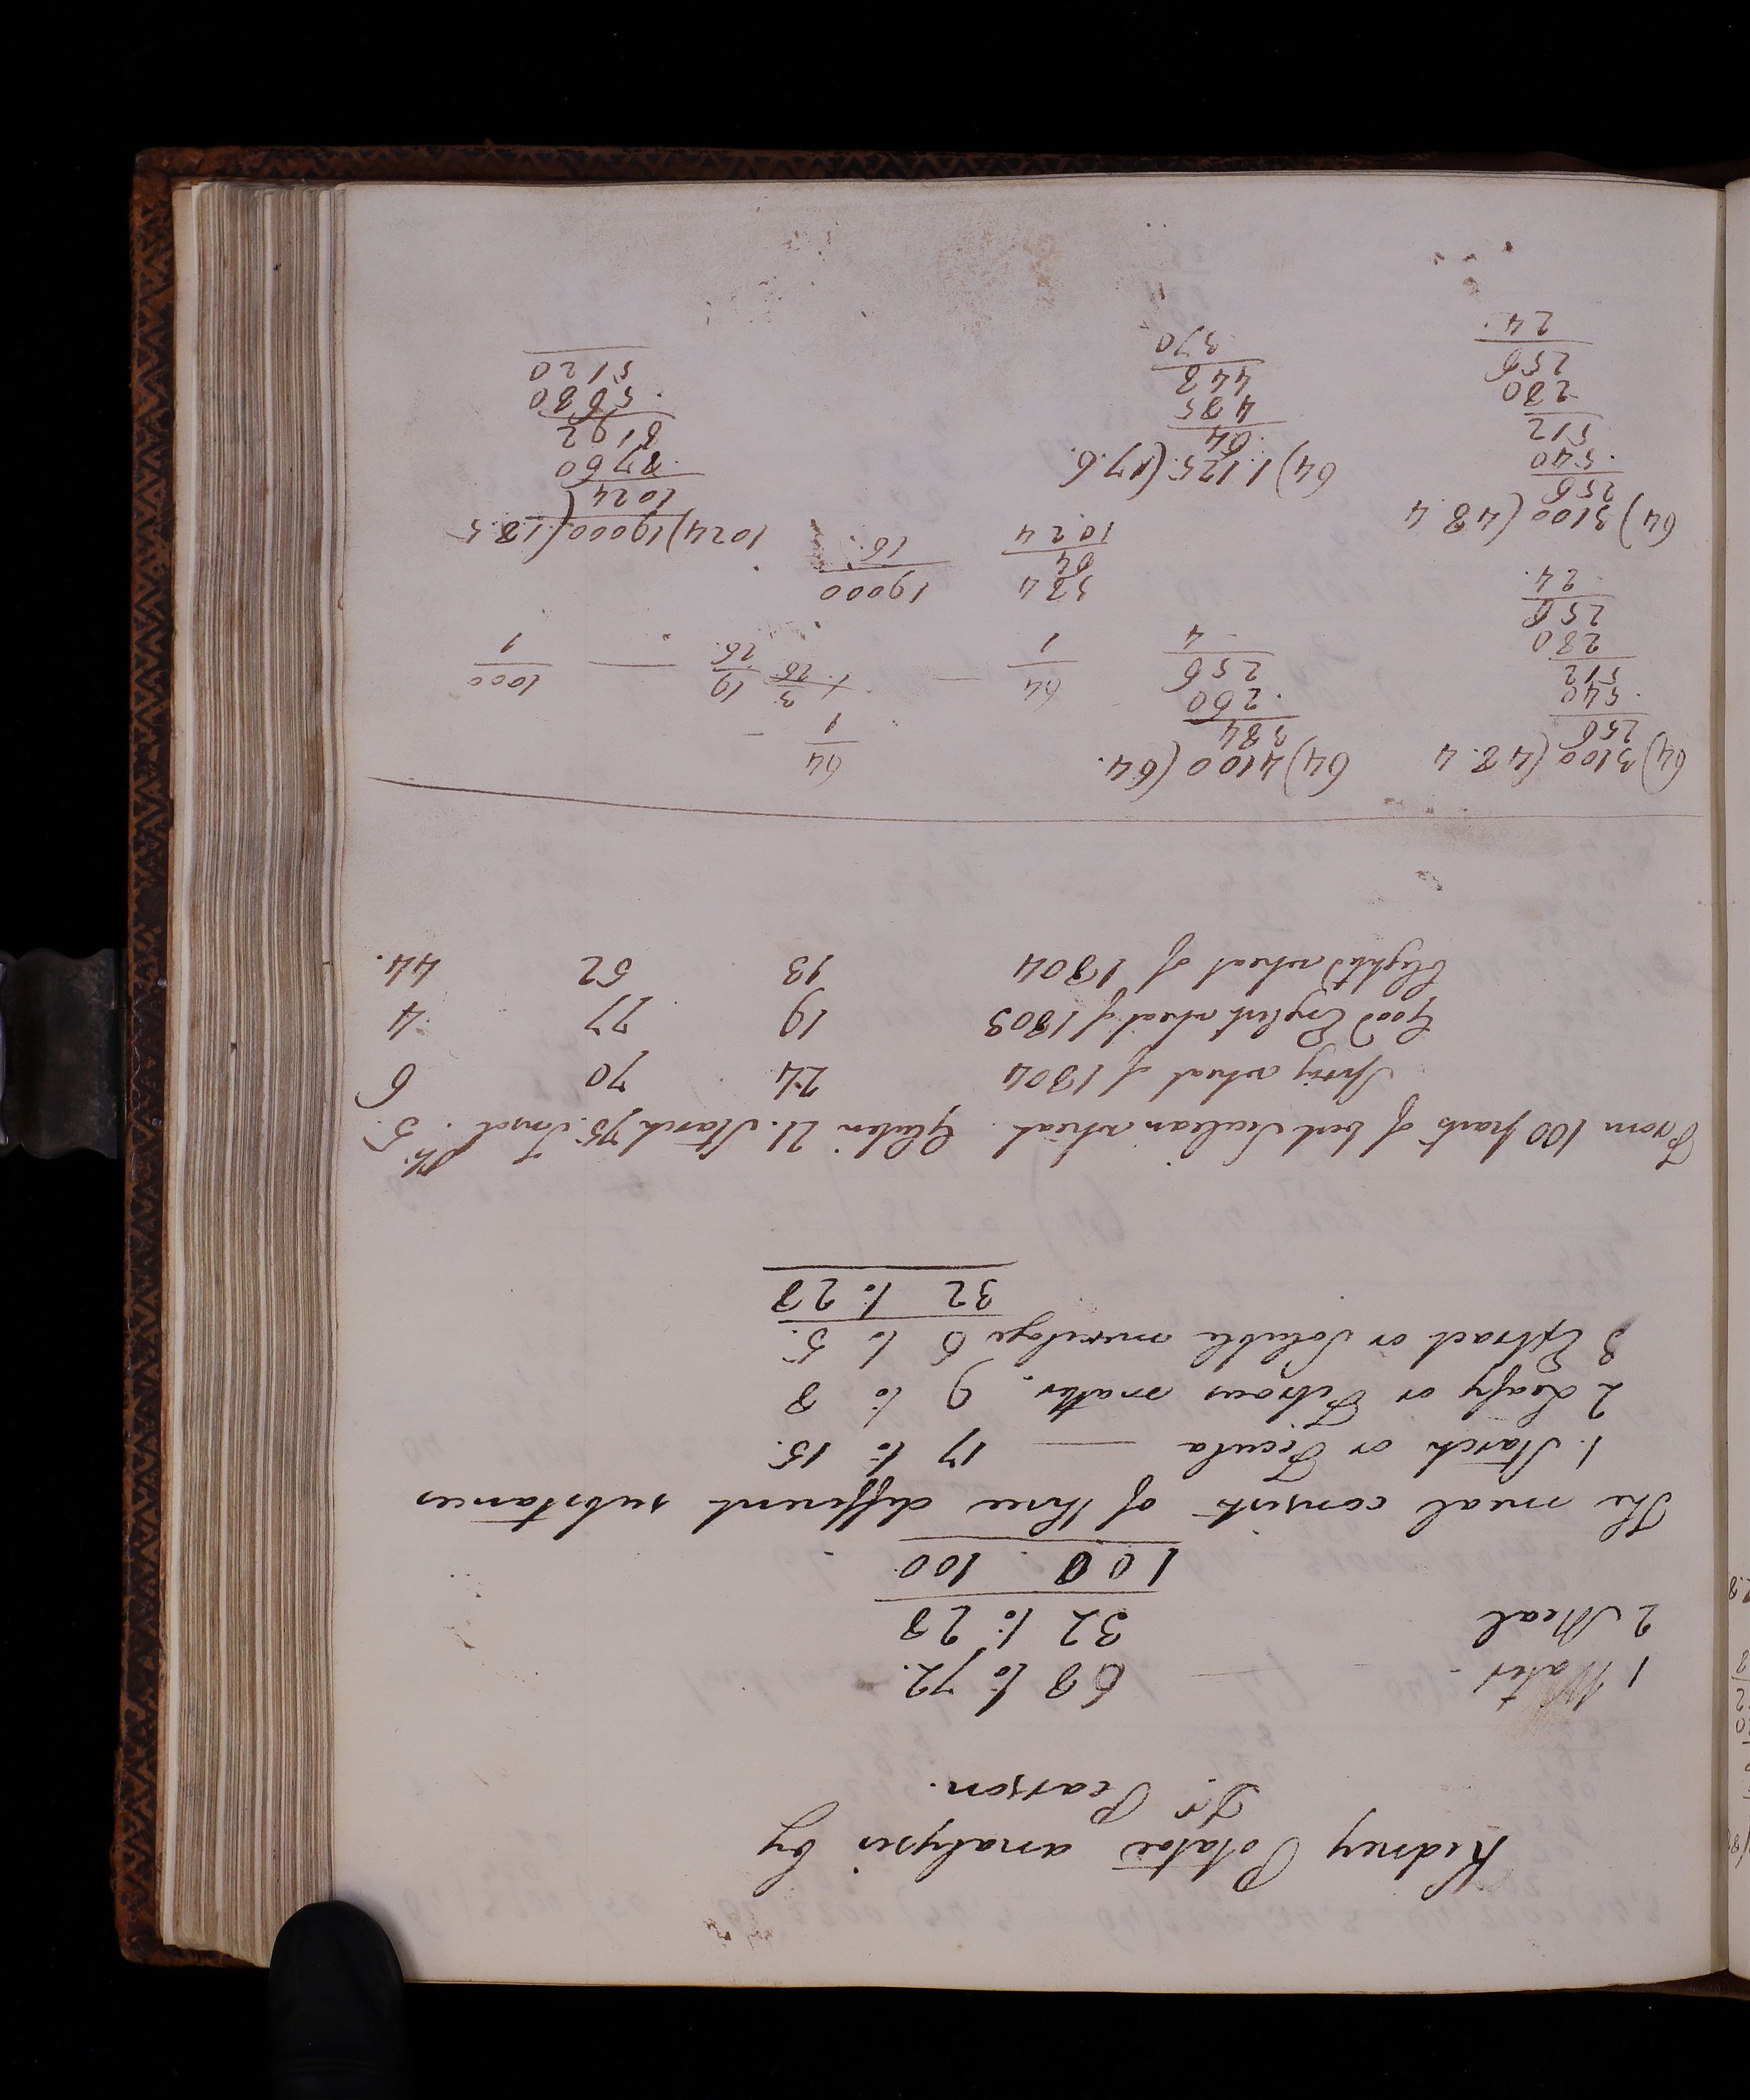 Kidney Potatoe analysis by
Dr Pearson.
1 Water - 68 to 72.
2 Meal 32 to 28
100 . 100
The meal consists of three different substances
1. Starch or Fecula — 17 to 15.
2 Leafy or Fibrous matter. 9 to 8
3 Extract or Soluble mucilage 6 to 5.
32 to 28
From 100 parts of best Sicilean wheat. Gluten 21. Starch 75. Insol. 5.
Spring wheat of 1804 24 70 6
Good English wheat of 1803 19 77 4
blighted wheat of 1804 13 52 44.
64) 3100 (48.4
256
540
512
280
256
24.
64) 4100 (64.
384
260
256
4
64
1
64
1
3
26
19
26
1000
1
384
64
1024
19000
16
64) 3100 (48.4
256
540
512
280
256
24.
64) 1125 (17.6.
64
485
448
370
1024) 19000 (18.5
1024
8760
8192
5680
5120